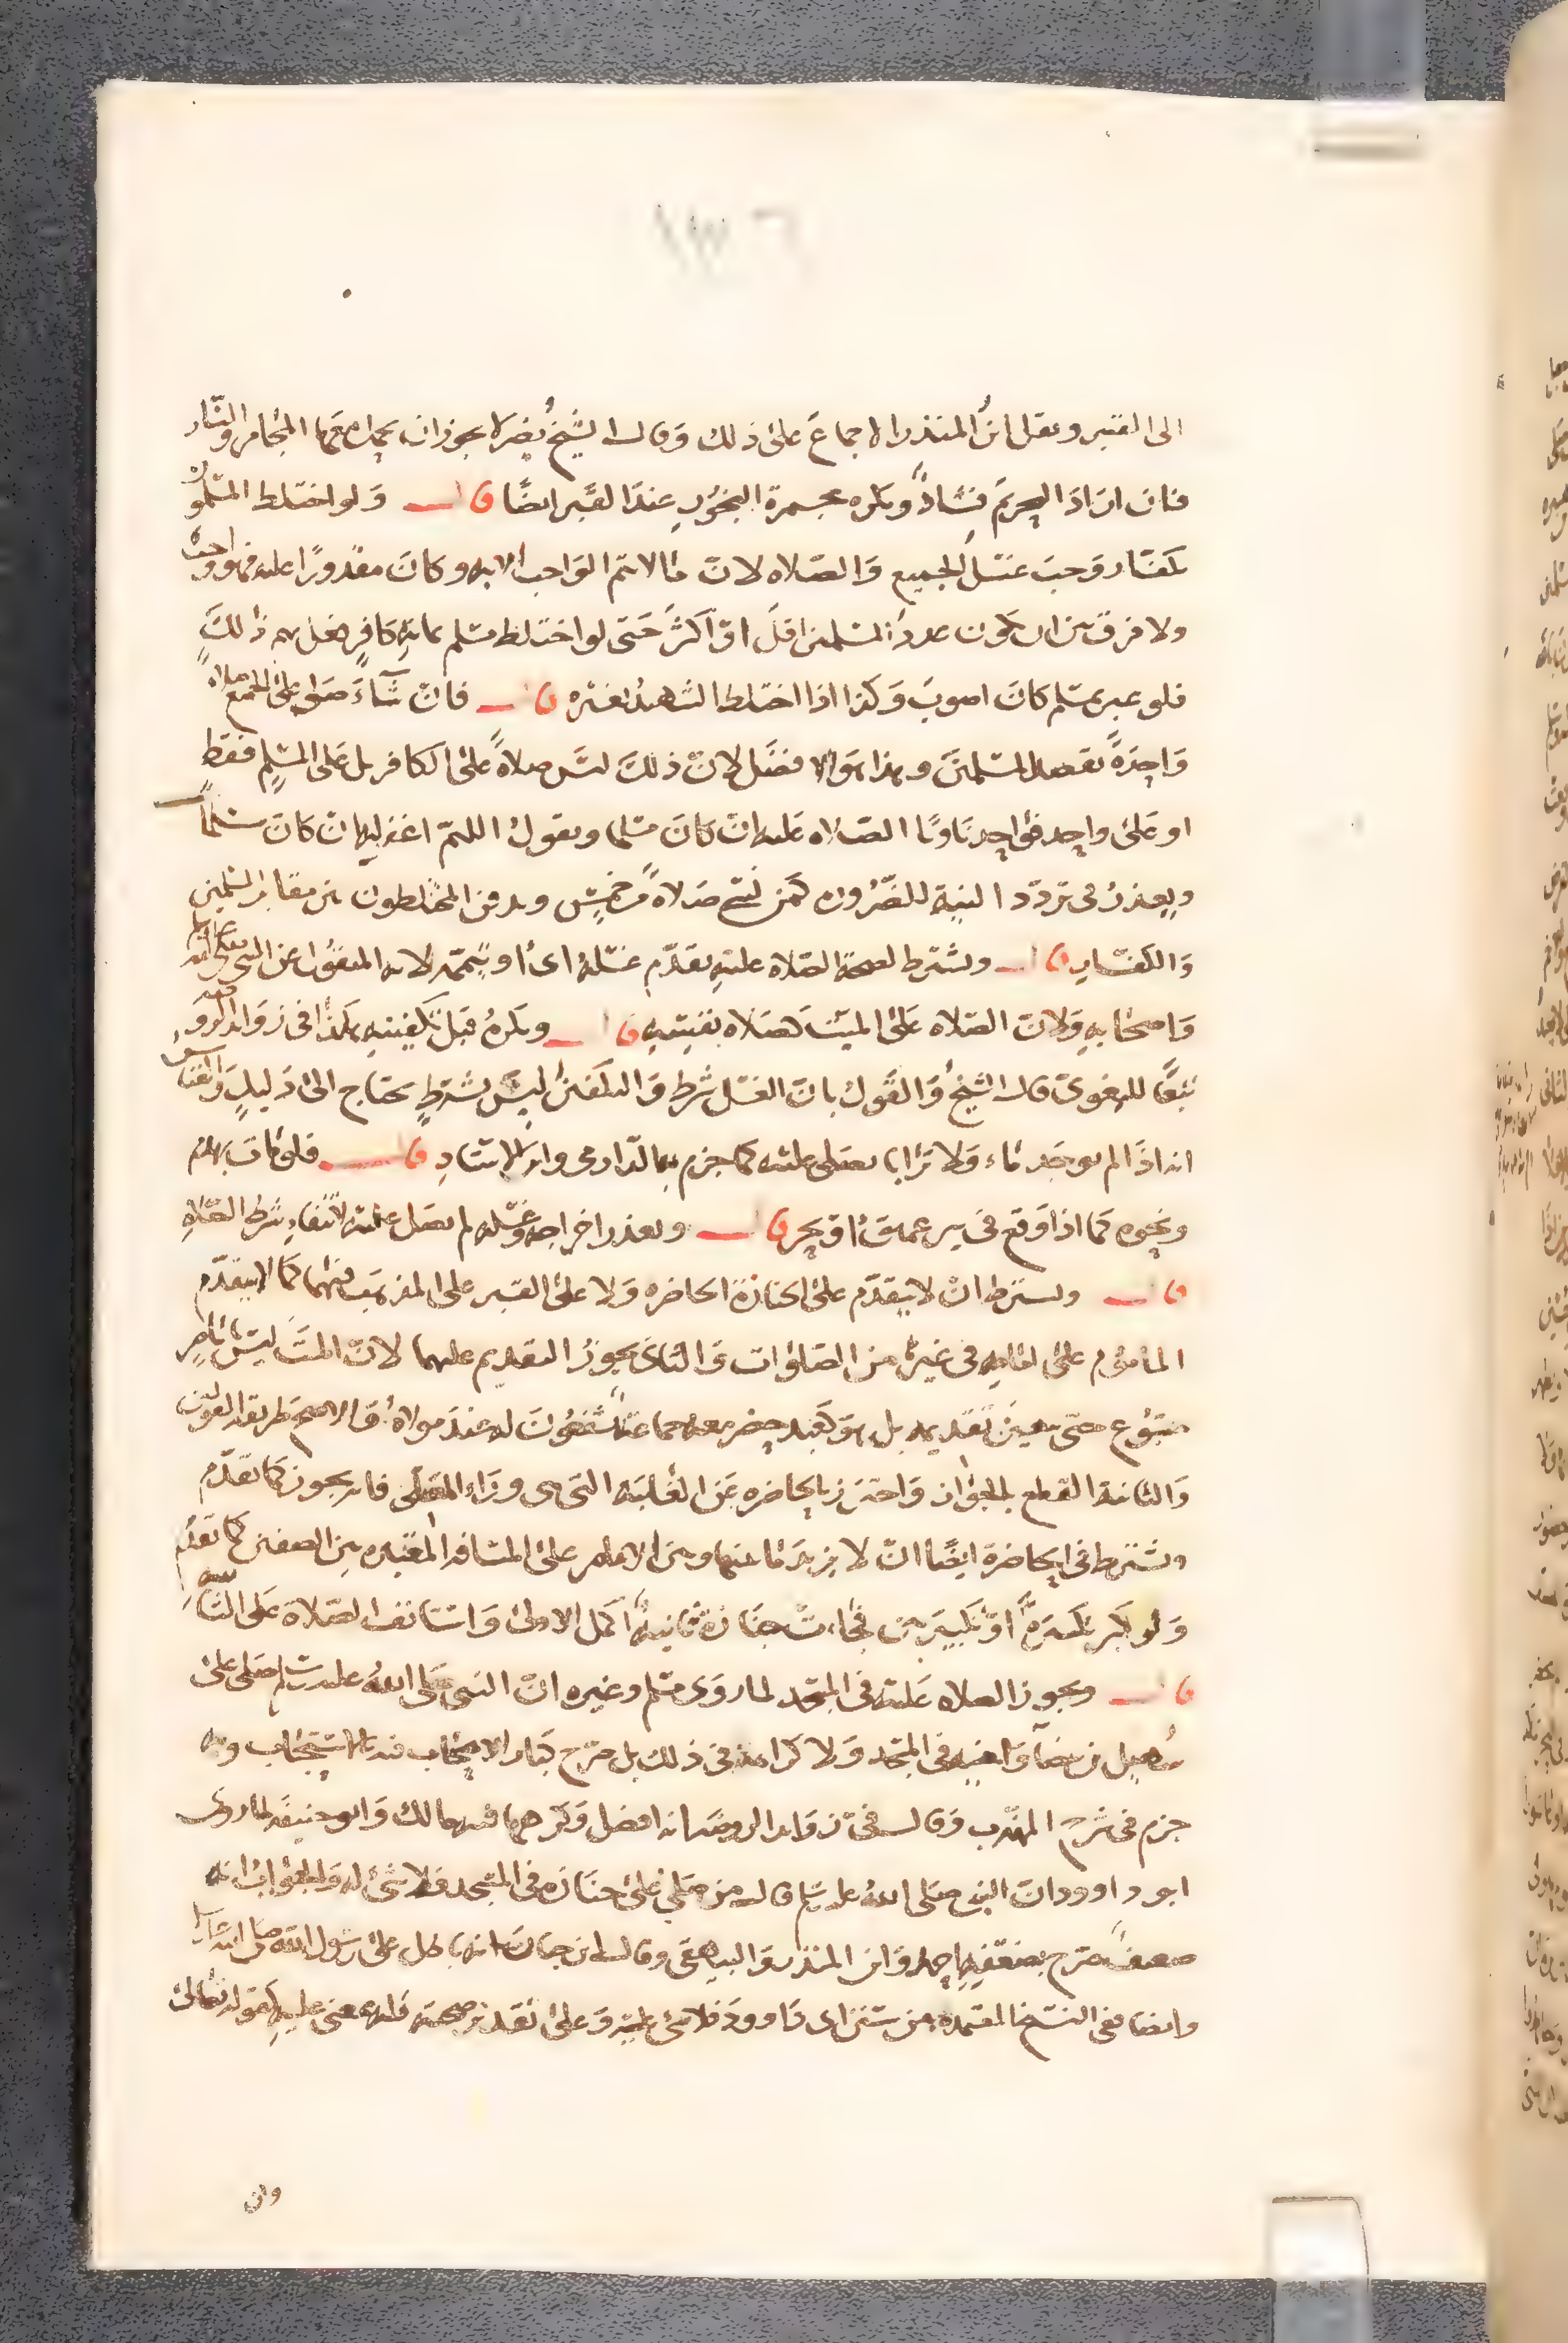 الى القبر ونقل ابن المنذر الاجماع على ذلك وقال الشيخ نصر لا يجوز ان يحمل معها المجامر والنار
فان اراد الجريد فشاذ ويكره مجمرة البخور عند القبر ايضا قال ولو اختلط المسلمون
بكفار وجب غسل الجميع والصلاة لان ما لا يتم الواجب الا به وكان مقدورا عليه فهو واجب
ولا فرق بين ان يكون عدد المسلمين اقل او اكثر حتى لو اختلط مسلم بماية كافر فعل بهم ذلك
فلو عبر بمسلم كان اصوب وكذا اذا اختلط الشهيد بغيره قال فان شاء صلى على الجميع صلاة
واحدة بقصد المسلمين وهذا هو الافضل لان ذلك ليس صلاة على الكافر بل على المسلم فقط
او على واحد فواحد ناويا الصلاه عليه ان كان مسلما ويقول اللهم اغفر له ان كان مسلما
ويعذر في تردد النية للضرورة كمن نسي صلاة من خمس ويدفن المختلطون بين مقابر المسلمين
والكفار قال ويشترط لصحة الصلاة عليه تقدم غسله اي او تيممه لانه المنقول عن النبي صلى الله عليه وسلم
واصحابه ولان الصلاه على الميت كصلاه نفسه قال ويكره قبل تكفينه كذا في زوايد الروضه
تبعا للبغوي قال الشيخ والقول بان الغسل شرط والتكفين ليس بشرط يحتاج الى دليل والقياس
انه اذا لم يوجد ماء ولا ترابا يصلى عليه كما جزم به الدارمي وابن الاستاد قال فلو مات بهدم
ونحوه كما اذا وقع في بير عميق او بحر قال وتعذر اخراجه وغسله لم يصل عليه لانتفاء شرط الصلاه
قال ويشترط ان لا يتقدم على الجنازة الحاضره ولا على القبر على المذهب فيهما كما لا يتقدم
الماموم على امامه في غيره من الصلوات والثاني يجوز التقديم عليهما لان الميت ليس بامام
متبوع حتى يتعين تقديمه بل هو كعبد حضر معه جماعة يشفعون له عند مولاه والاصح طريقة القولين
والثانية القطع بالجواز واحترز بالحاضره عن الغايبه التي هي وراء المصلي فانه يجوز كما تقدم
ويشترط في الحاضرة ايضا ان لا يزيد ما بينها وبين الامام على المسافه المعتبره بين الصفين كما تقدم
ولو كبر تكبيرة او تكبيرتين فجاءت جنازة ثانية اكمل الاولى واستانف الصلاة على الثانية
قال ويجوز الصلاه عليه في المسجد لما روى مسلم وغيره ان النبي صلى الله عليه وسلم صلى على
سهيل بن بيضا واخيه في المسجد ولا كراهة في ذلك بل صرح كبار الاصحاب فيه بالاستحباب وبه
جزم في شرح المهذب وقال في زوايد الروضه انه افضل وكرهها فيه مالك وابو حنيفه لما روى
ابو داوود ان النبي صلى الله عليه وسلم قال من صلى على جنازة في المسجد فلا شئ له والجواب انه
ضعيف صرح بضعفه احمد وابن المنذر والبيهقي وقال ابن حبان انه باطل على رسول الله صلى الله عليه وسلم
وايضا ففي النسخ المعتمده من سنن ابي داوود فلا شئ عليه وعلى تقدير صحته فله بمعنى عليه كقوله تعالى
وان